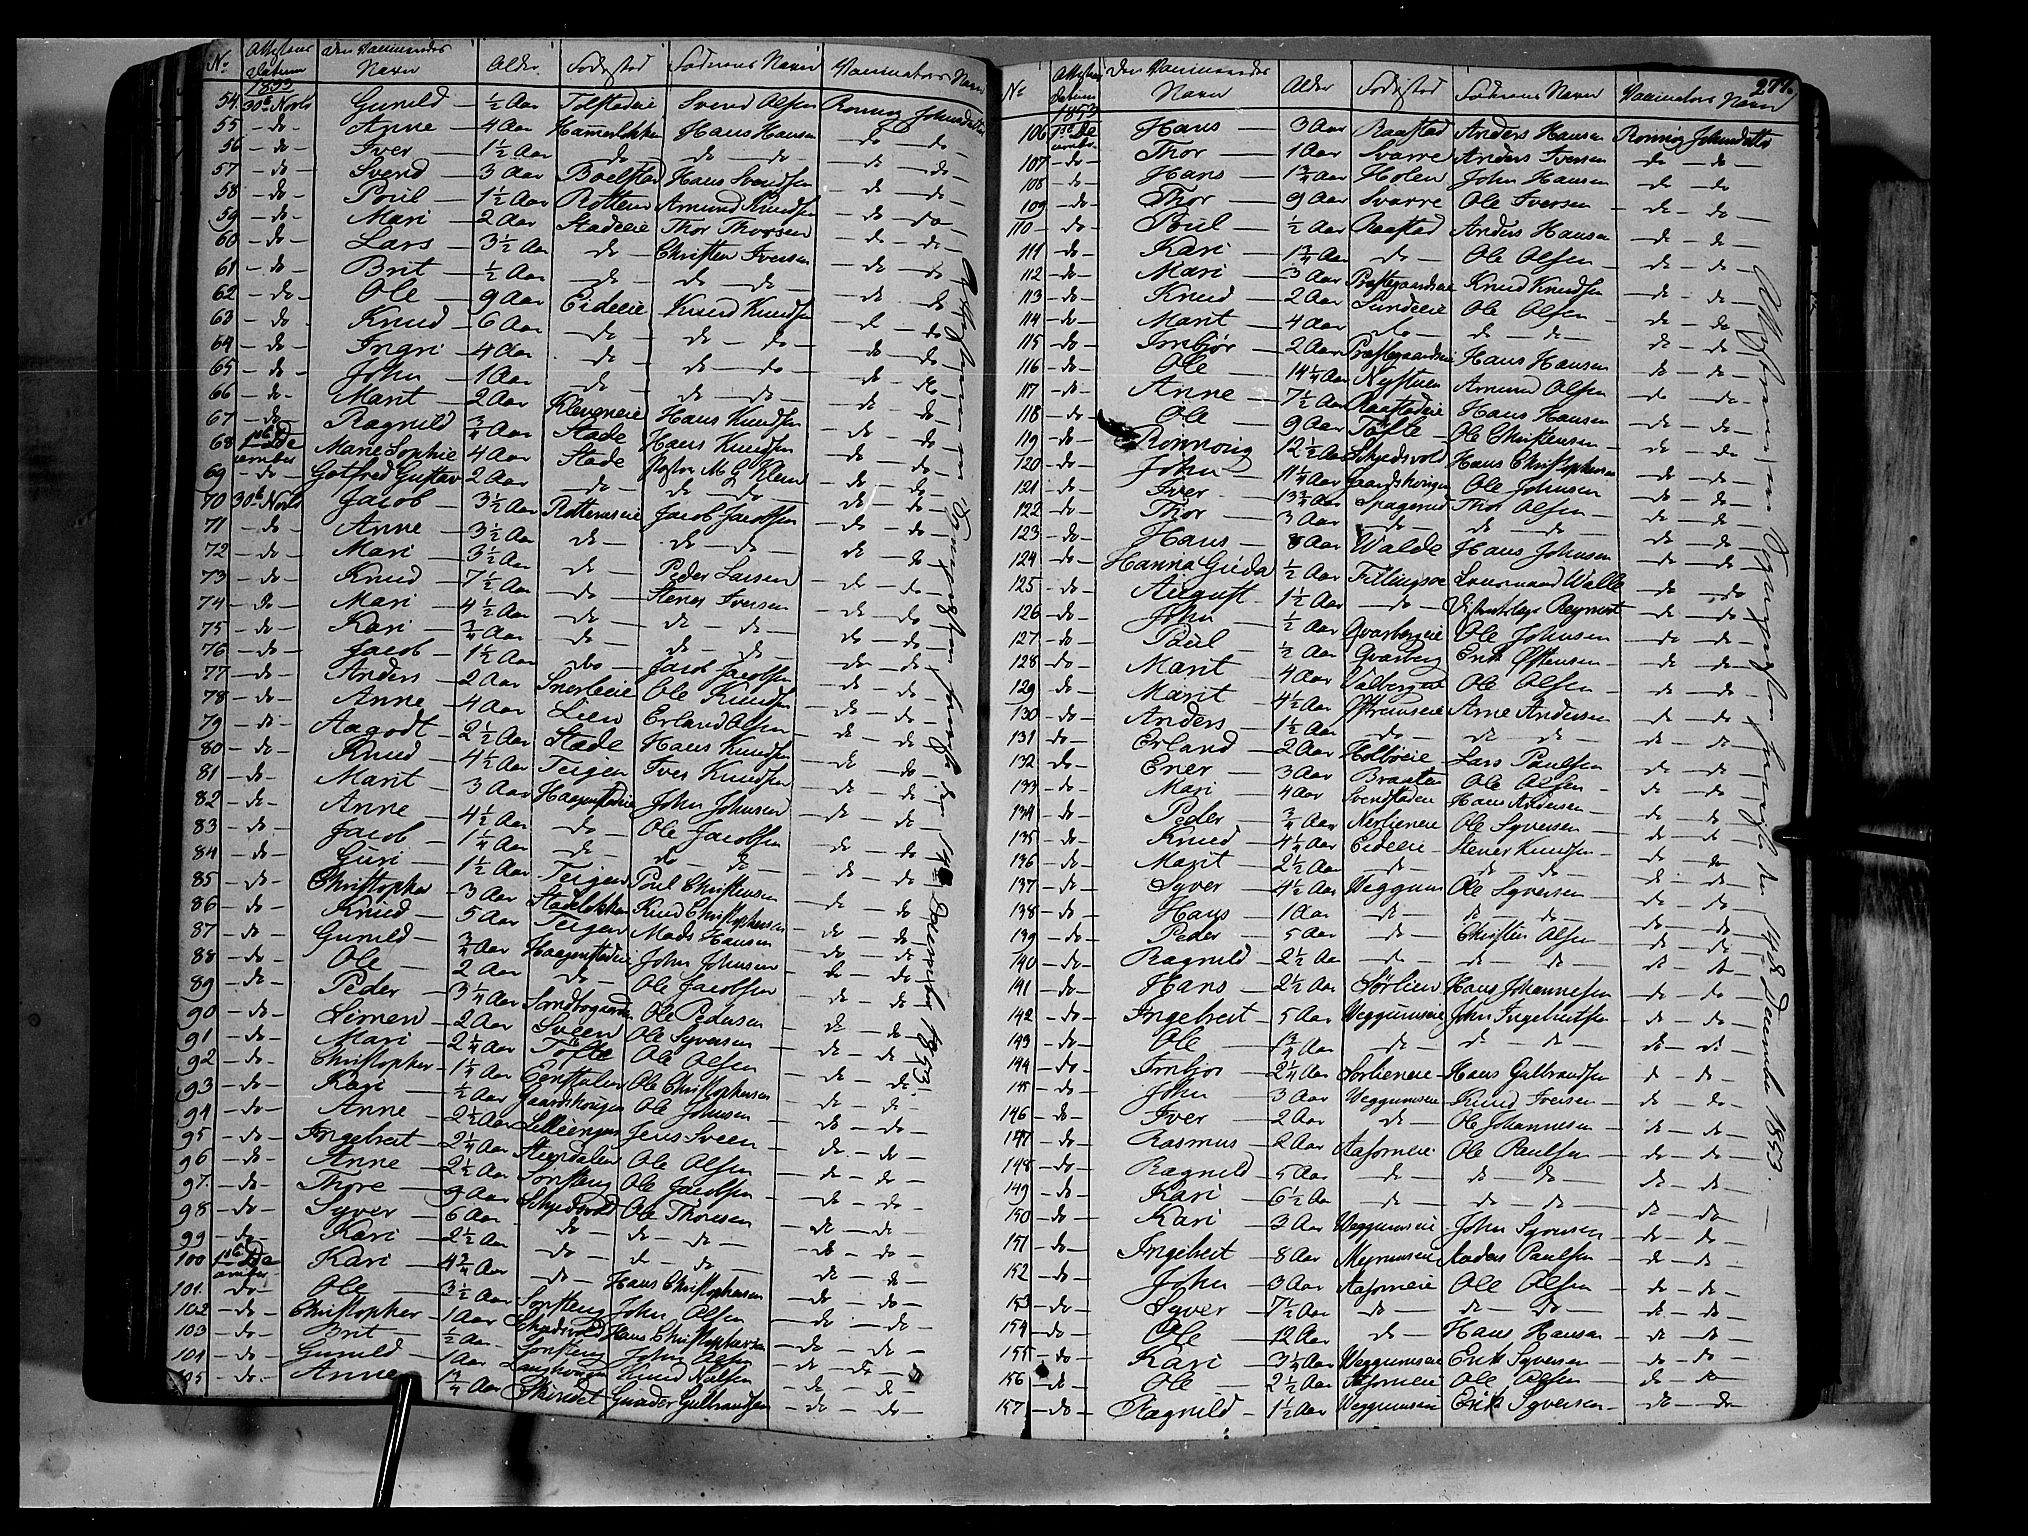 No Attestens Datum Den Vaccineredes Navn Alder Fødested Faderens Navn Vaccinators Navn
1853
54 30te Novbr Gunild ½ Aar Tolstadeie Svend Olsen Ronnog Johnsdatter
55 – do – Anne 4 Aar Hammerløkken Hans Hansen – do – do –
56 – do – Iver 1½ Aar – do – – do – do – do – do –
57 – do – Svend 3 Aar Boelstad Hans Svendsen – do – do –
58 – do – Poul 1½ Aar Rottem Amund Knudsen – do – do –
59 – do – Mari 2 Aar Stadeeie Thor Thorsen – do – do –
60 – do – Lars 3½ Aar – do – Christen Iversen – do – do –
61 – do – Brit ½ Aar – do – – do – do – do – do –
62 – do – Ole 9 Aar Eideeie Knud Knudsen – do – do –
63 – do – Knud 6 Aar – do – – do – do – do – do –
64 – do – Ingri 4 Aar – do – – do – do – do – do –
65 – do – John 1 Aar – do – – do – do – do – do –
66 – do – Marit 2 Aar Klevgneie Hans Knudsen – do – do –
67 – do – Ragnild ¾ Aar Stade Hans Knudsen – do – do –
68 1ste December Marie Sophie 4 Aar Stade Pastor M. G. Klem – do – do –
69 – do – Gotfred Gustav 2 Aar – do – – do – do – do – do –
70 30te Novbr Jacob 3½ Aar Rottemseie Jacob Jacobsen – do – do –
71 – do – Anne 3½ Aar – do – – do – do – do – do –
72 – do – Mari 3½ Aar – do – Peder Larsen – do – do –
73 – do – Knud 7½ Aar – do – Stener Iversen – do – do –
74 – do – Mari 4½ Aar – do – – do – do – do – do –
75 – do – Kari ¾ Aar – do – – do – do – do – do –
76 – do – Jacob 1½ Aar – do – Jacob Jacobsen – do – do –
77 – do – Anders 2 Aar Snerleeie Ole Knudsen – do – do –
78 – do – Anne 4 Aar Lien Erland Olsen – do – do –
79 – do – Aagodt 2½ Aar Stade Hans Knudsen – do – do –
80 – do – Knud 4½ Aar Teigen Iver Knudsen – do – do –
81 – do – Marit 3 Aar Haagenstadeie John Johnsen – do – do –
82 – do – Anne 4½ Aar – do – Ole Jacobsen – do – do –
83 – do – Jacob 1¼ Aar – do – – do – do – do – do –
84 – do – Guri 1½ Aar Teigen Poul Christensen – do – do –
85 – do – Christopher 3 Aar Stadeløkken Knud Christophersen – do – do –
86 – do – Knud 5 Aar Teigen Mads Hansen – do – do –
87 – do – Gunild ¾ Aar Haagenstadeie John Johnsen – do – do –
88 – do – Ole 2 Aar – do – Ole Jacobsen – do – do –
89 – do – Peder 3¼ Aar Sandbogaarden Ole Pedersen – do – do –
90 – do – Simen 2 Aar Sveen Ole Syversen – do – do –
91 – do – Mari 2¼ Aar Tofte Ole Olsen – do – do –
92 – do – Christopher 1¼ Aar Ole Christophersen – do – do –
93 – do – Kari ½ Aar Gaardshougen Ole Johnsen – do – do –
94 – do – Anne 2½ Aar Lilleengen Jens Sveen – do – do –
95 – do – Ingebret 2¼ Aar Stendalen Ole Olsen – do – do –
96 – do – Anne 2½ Aar Ole Jacobsen – do – do –
97 – do – Thore 9 Aar Skjedsvold Ole Thoresen – do – do –
98 – do – Syver 6 Aar – do – – do – do – do – do –
99 – do – Kari 2½ Aar – do – – do – do – do – do –
100 1ste December Kari 4¾ Aar – do – Hans Christophersen – do – do –
101 – do – Ole 3½ Aar John Olsen – do – do –
102 – do – Christopher 1 Aar Skjedsvold Hans Christophersen – do – do –
103 – do – Brit ½ Aar John Olsen – do – do –
104 – do – Gunild 1 Aar Knud Nielsen – do – do –
105 – do – Anne 1¾ Aar Skindet Gunder Gulbrandsen – do – do –
Attesterne om Dygtigheden foreviist den 14de December 1853.
No Attestens Datum Den Vaccineredes Navn Alder Fødested Faderens Navn Vaccinators Navn
1853
106 1ste December Hans 3 Aar Raastad Anders Hansen Ronnog Johnsdatter
107 – do – Thor 1 Aar Svarre Anders Iversen – do – do –
108 – do – Hans 1¾ Aar Holen John Hansen – do – do –
109 – do – Thor 9 Aar Svarre Ole Iversen – do – do –
110 – do – Poul ½ Aar Raastad Anders Hansen – do – do –
111 – do – Kari 1¾ Aar – do – Ole Olsen – do – do –
112 – do – Mari 3 Aar Præstegaardseie Knud Knudsen – do – do –
113 – do – Knud 2 Aar Sundeeie Ole Olsen – do – do –
114 – do – Marit 4 Aar – do – – do – do – do – do –
115 – do – Imbjør 2 Aar Præstegaardseie Hans Hansen – do – do –
116 – do – Ole 14¼ Aar Nystuen Amund Olsen – do – do –
117 – do – Anne 7½ Aar Raastadeie Hans Hansen – do – do –
118 – do – Ole 9 Aar Tofte Ole Christensen – do – do –
119 – do – Ronnoug 12½ Aar Skjedsvold Hans Christophersen – do – do –
120 – do – John 11¼ Aar Gaardshougen Ole Johnsen – do – do –
121 – do – Iver 13¾ Aar Spagerud Thor Olsen – do – do –
122 – do – Thor 3 Aar – do – – do – do – do – do –
123 – do – Hans 8 Aar Walde Hans Johnsen – do – do –
124 – do – Hanna Gieda ½ Aar Tillingsøe Walle – do – do –
125 – do – August 1½ Aar – do – Reymert – do – do –
126 – do – John ½ Aar Qvarbergeie Ole Johnsen – do – do –
127 – do – Paul ½ Aar Qvarberg Erik Østensen – do – do –
128 – do – Marit 4 Aar Valbergeie Ole Olsen – do – do –
129 – do – Marit 4½ Aar Arne Andersen – do – do –
130 – do – Anders 1½ Aar – do – – do – do – do – do –
131 – do – Erland 2 Aar Holbøeie Lars Paulsen – do – do –
132 – do – Ener 3 Aar Braaten Ole Olsen – do – do –
133 – do – Mari 4 Aar Svendstadeie Hans Andersen – do – do –
134 – do – Peder ¾ Aar Nerlieneie Ole Syversen – do – do –
135 – do – Knud 4¼ Aar Eideeie Stener Knudsen – do – do –
136 – do – Marit 2½ Aar – do – – do – do – do – do –
137 – do – Syver 4½ Aar Veggum Ole Syversen – do – do –
138 – do – Hans 1 Aar – do – – do – do – do – do –
139 – do – Peder 5 Aar – do – Christen Olsen – do – do –
140 – do – Ragnild 2½ Aar – do – – do – do – do – do –
141 – do – Hans 2½ Aar Sørlien Hans Johannesen – do – do –
142 – do – Ingebret 5 Aar Veggumseie John Ingebretsen – do – do –
143 – do – Ole 1¾ Aar – do – – do – do – do – do –
144 – do – Imbjør 2¼ Aar Sørlieneie Hans Gulbrandsen – do – do –
145 – do – John 3 Aar Veggumseie Knud Iversen – do – do –
146 – do – Iver 2 Aar – do – Ole Johannesen – do – do –
147 – do – Rasmus 2 Aar Aasomeie Ole Paulsen – do – do –
148 – do – Ragnild 5 Aar – do – – do – do – do – do –
149 – do – Kari 6½ Aar – do – – do – do – do – do –
150 – do – Kari 3 Aar Veggumseie John Syversen – do – do –
151 – do – Ingebret 8 Aar Anders Paulsen – do – do –
152 – do – John 3 Aar Aasomeie Ole Olsen – do – do –
153 – do – Syver 7½ Aar – do – – do – do – do – do –
154 – do – Ole 12 Aar – do – Hans Hansen – do – do –
155 – do – Kari 3¼ Aar Veggumseie Erik Syversen – do – do –
156 – do – Ole 2½ Aar Aasomeie Ole Olsen – do – do –
157 – do – Ragnild 1½ Aar Veggumseie Erik Syversen – do – do –
Attesterne om Dygtigheden foreviist den 14de December 1853.